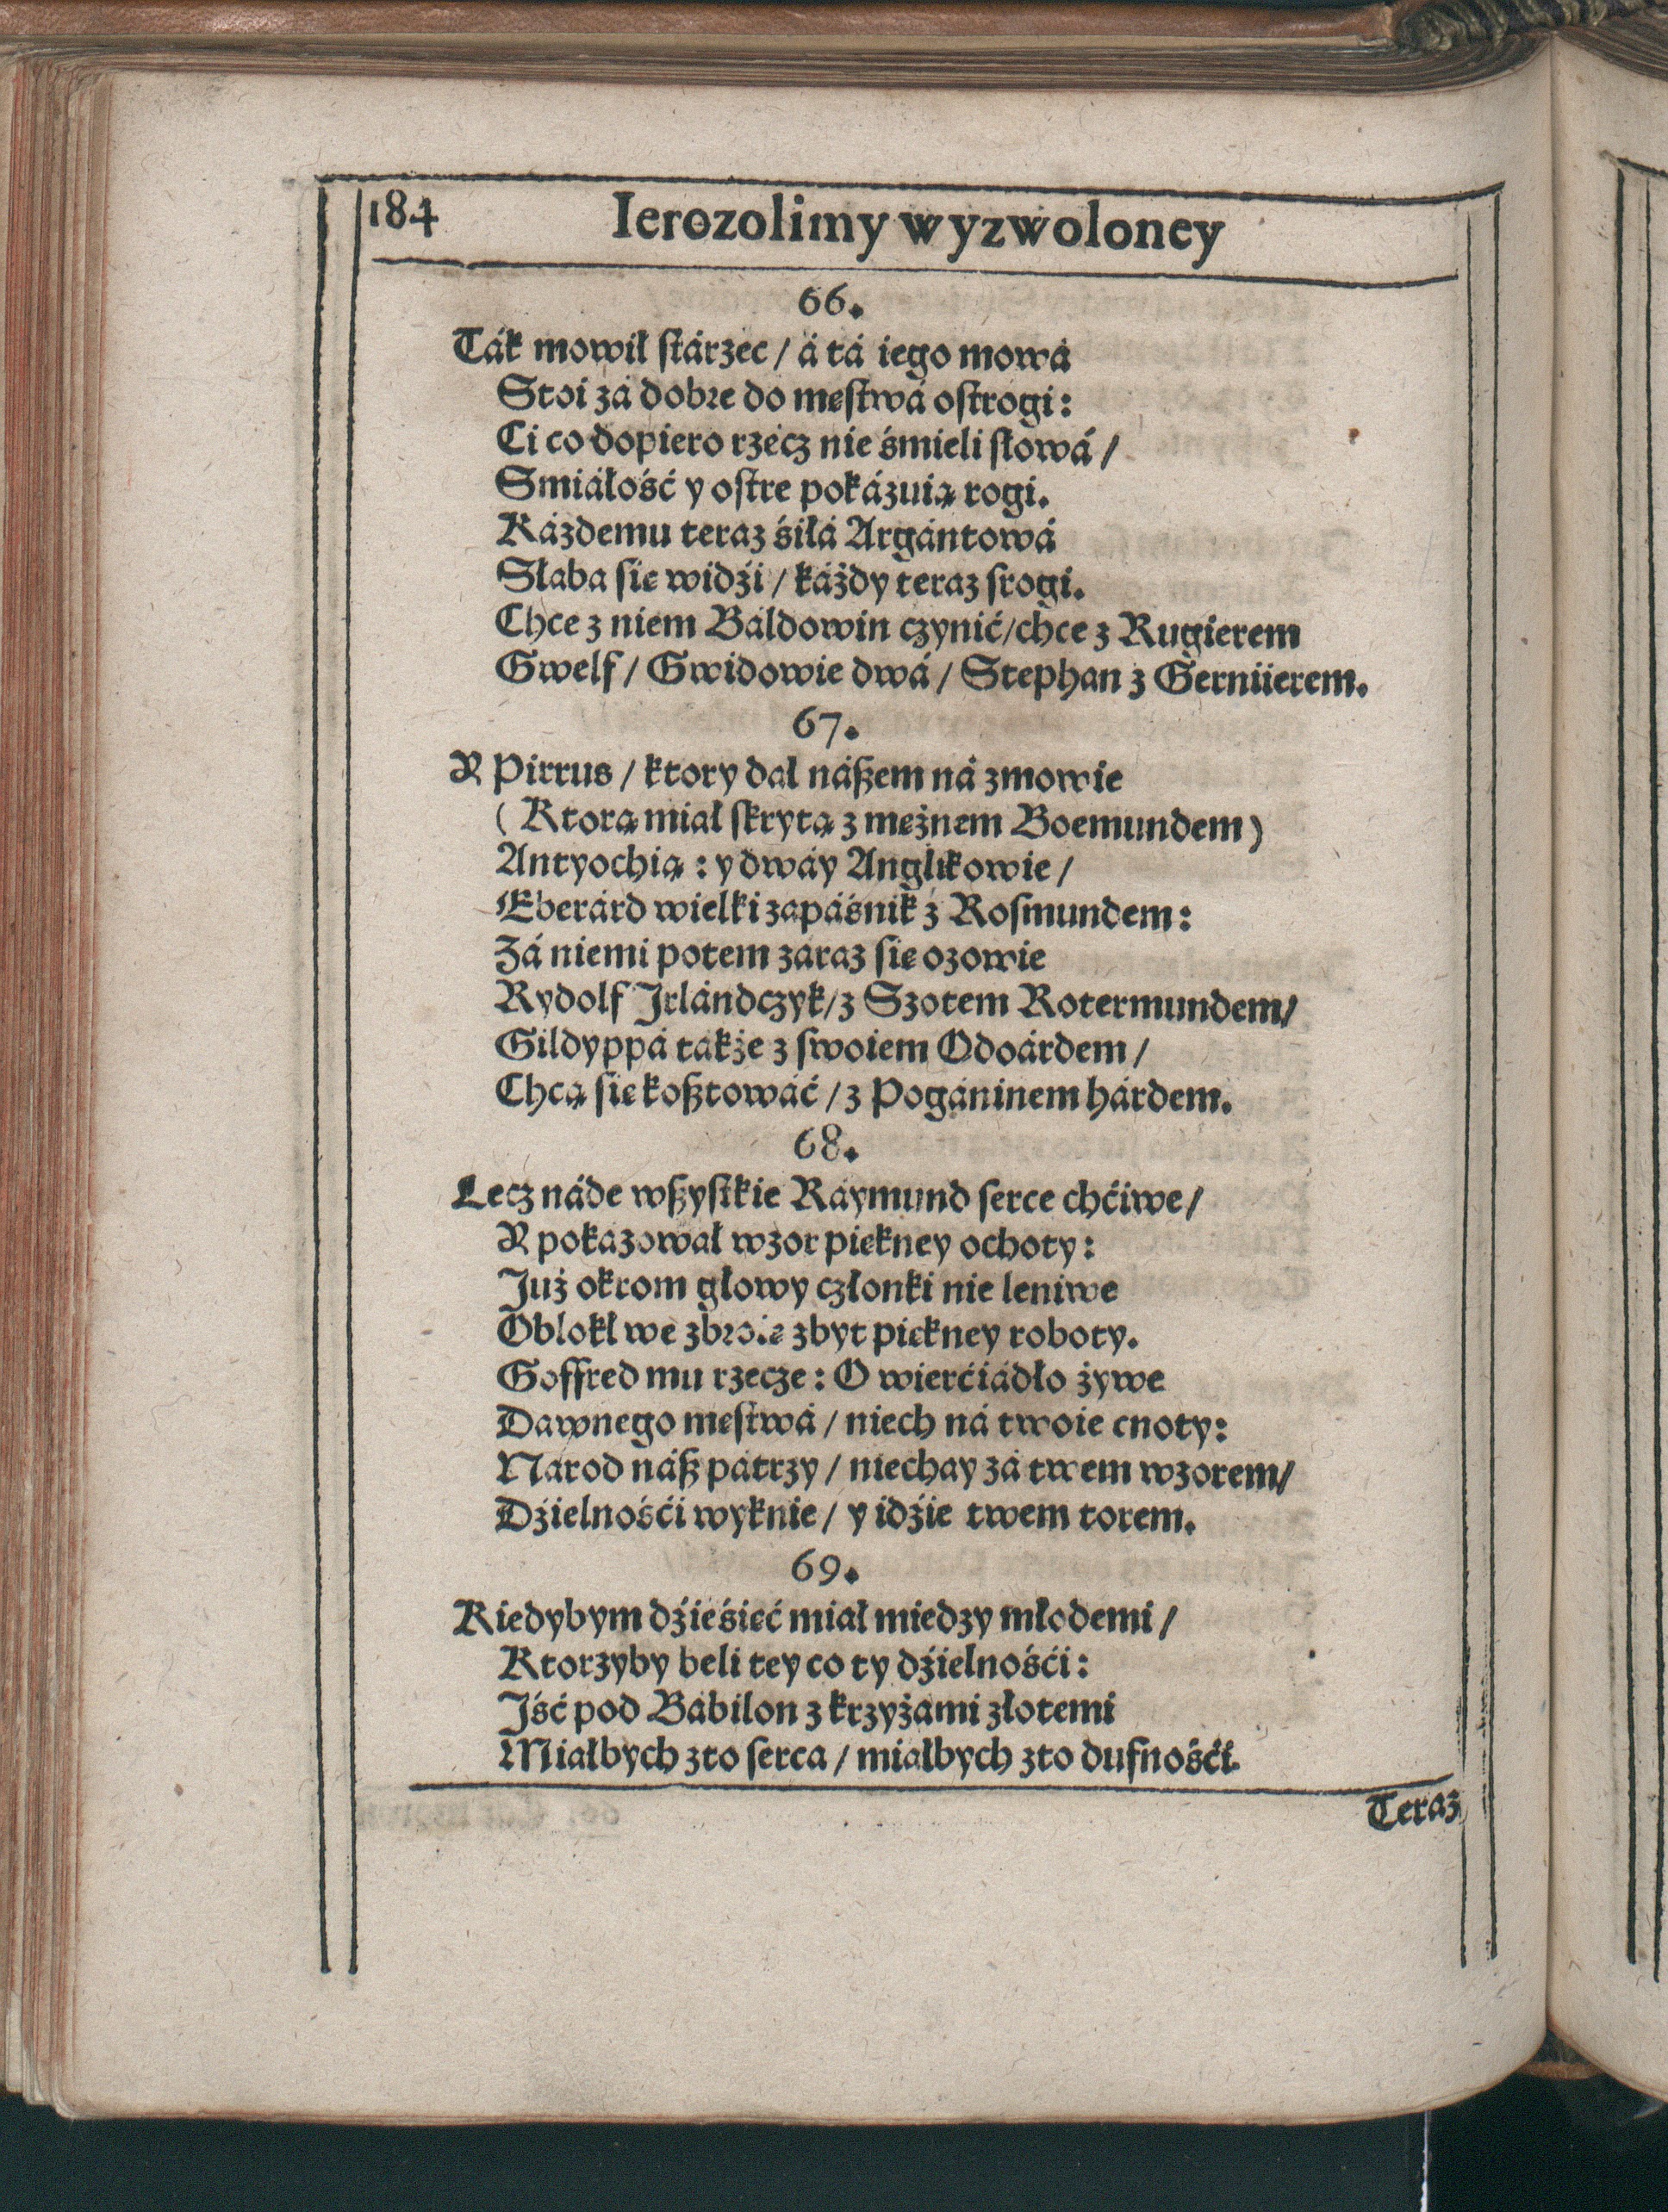 184 Ierozolimy wyzwoloney
66.
Ták mowił stárzec / á tá iego mowá
Stoi zá dobre do męstwá ostrogi:
Ci co dopiero rzécz nie śmieli słowá /
Smiáłość y ostre pokázuią rogi.
Káżdemu teraz śiłá Argántowá
Słaba się widźi / káżdy teraz srogi.
Chce z niem Báldowin czynić / chce z Rugierem
Gwelf / Gwidowie dwá / Stephan z Gerniierem.
67.
Y Pirrus / ktory dał nászem ná zmowie
( Ktorą miał skrytą z mężnem Boemundem )
Antyochią : y dwáy Anglikowie /
Eberárd wielki zapáśnik z Rosmundem :
Zá niemi potem záraz się ozowie
Rydolf Irlándczyk / z Szotem Rotermundem /
Gildyppá tákże z swoiem Odoárdem /
Chcą się kosztowáć / z Pogáninem hárdem.
68.
Lecz náde wszystkie Ráymund serce chćiwe /
Y pokazował wzor piękney ochoty :
Już okrom głowy członki nie leniwe
Oblokł we zbroię zbyt piękney roboty.
Goffred mu rzecze : O wierćiádło żywe
Dawnego męstwá / niech ná twoie cnoty :
Narod nász pátrzy / niechay zá twem wzorem /
Dźielnośći wyknie / y idźie twem torem.
69.
Kiedybym dźieśięć miał miedzy młodemi /
Ktorzyby beli tey co ty dźielnośći :
Iść pod Bábilon z krzyżámi złotemi
Miałbych zto serca / miałbych zto dufnośći.
Teraz